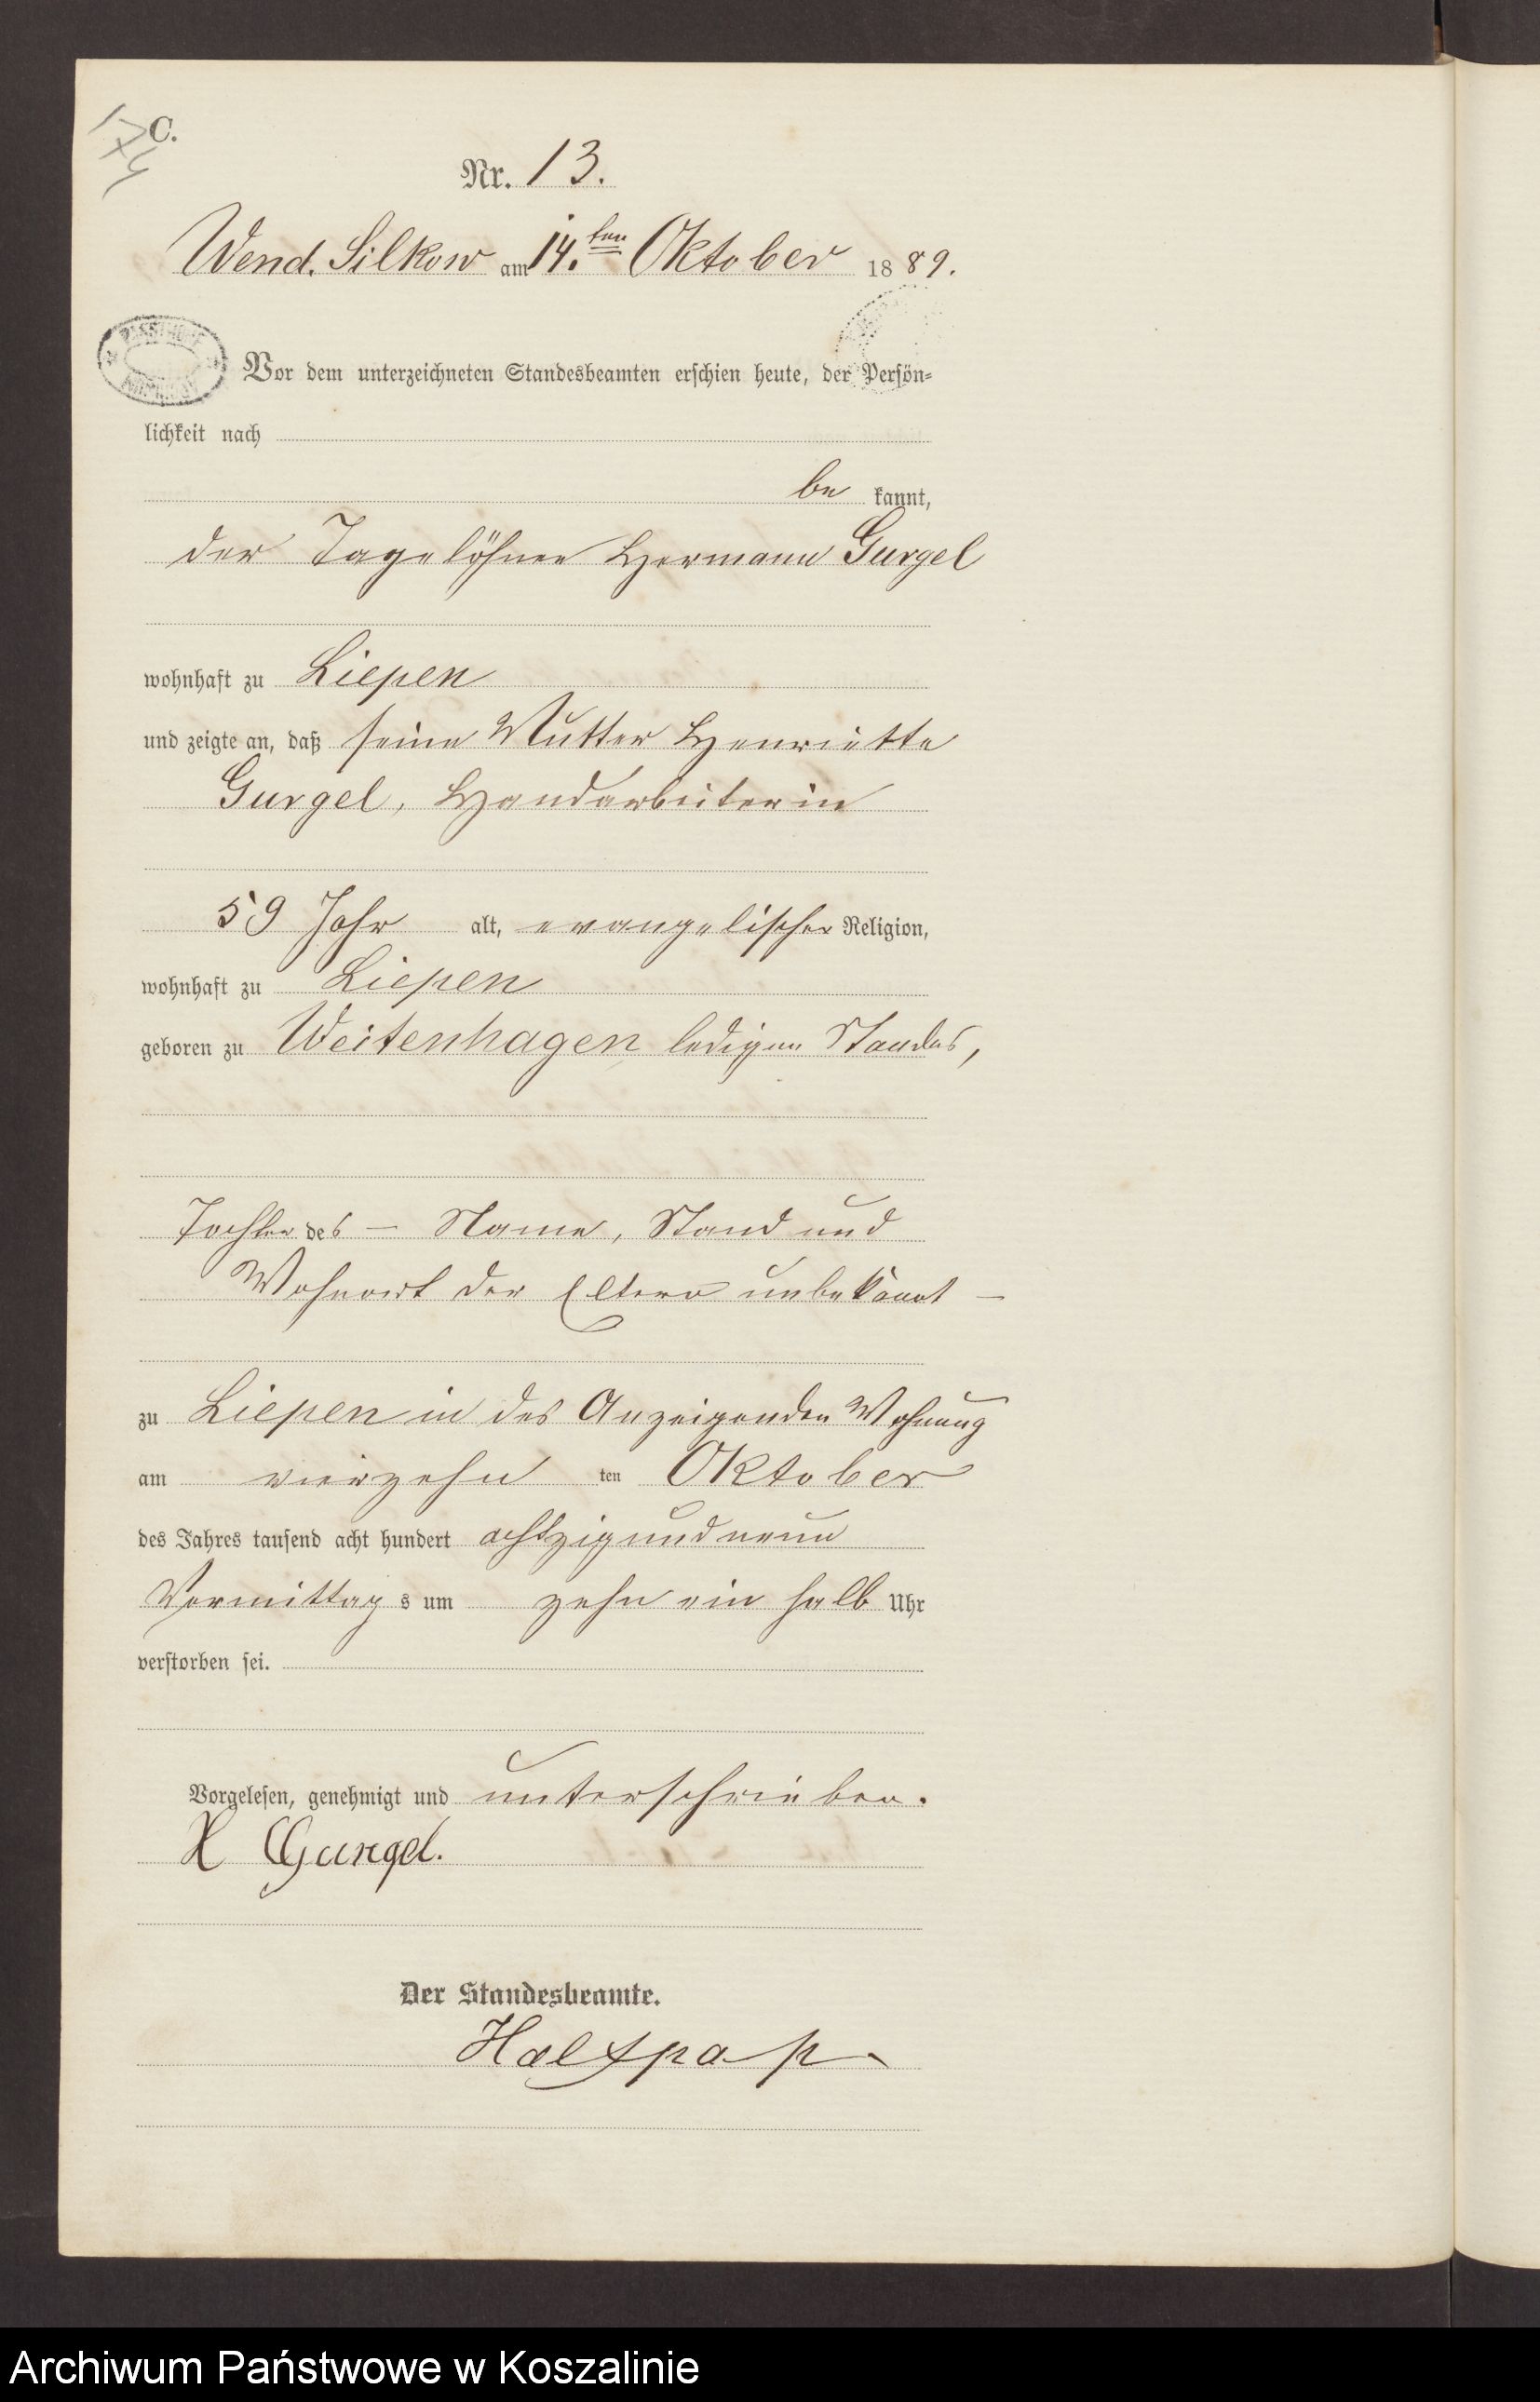 C.
174
Nr. 13.
Wend. Silkow am 14.ten Oktober 1889.
Vor dem unterzeichneten Standesbeamten erschien heute, der Persön-
lichkeit nach
be kannt,
der Tagelöhner Hermann Gurgel
wohnhaft zu Liepen
und zeigte an, daß seine Mutter Henriette
Gurgel, Handarbeiterin
59 Jahr alt, evangelischer Religion,
wohnhaft zu Liepen
geboren zu Weitenhagen ledigen Standes,
Tochter des — Name, Stand und
Wohnort der Eltern unbekannt —
zu Liepen in des Anzeigenden Wohnung
am vierzehn ten Oktober
des Jahres tausend acht hundert achtzig und neun
Vormittag s um zehn ein halb Uhr
verstorben sei.
Vorgelesen, genehmigt und unterschrieben.
H Gurgel.
Der Standesbeamte.
Archiwum Państwowe w Koszalinie